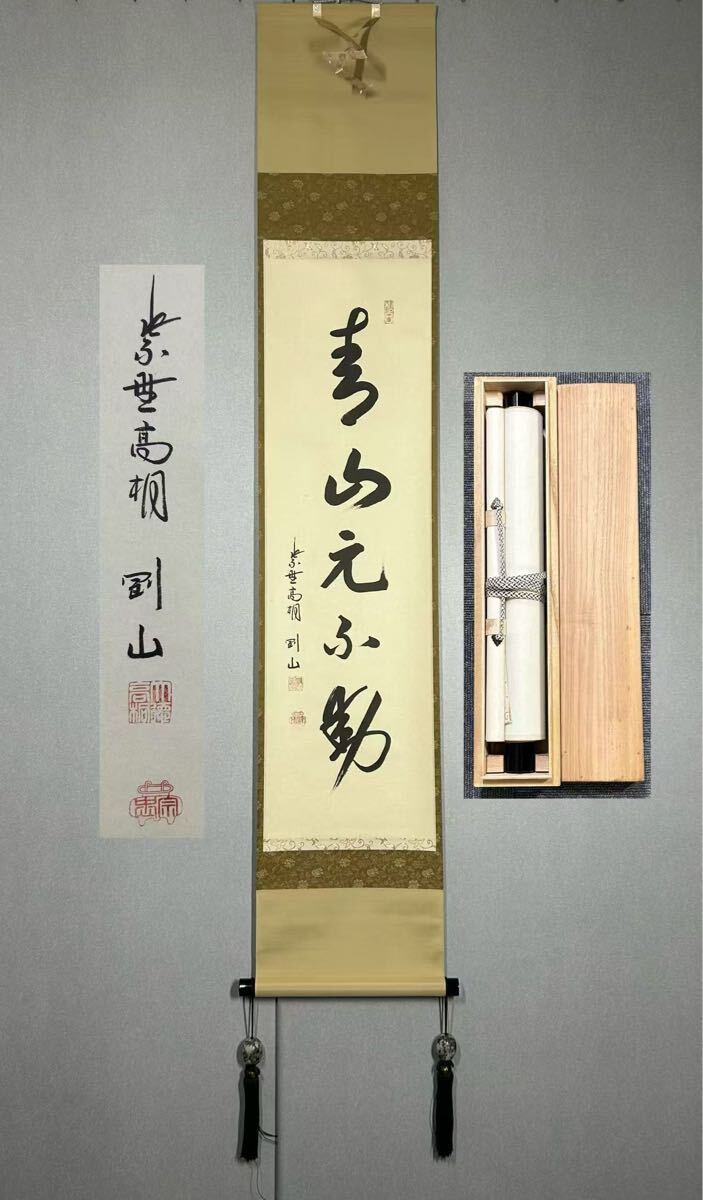 青山元不動
紫野高桐 剛山
紫野高桐 剛山